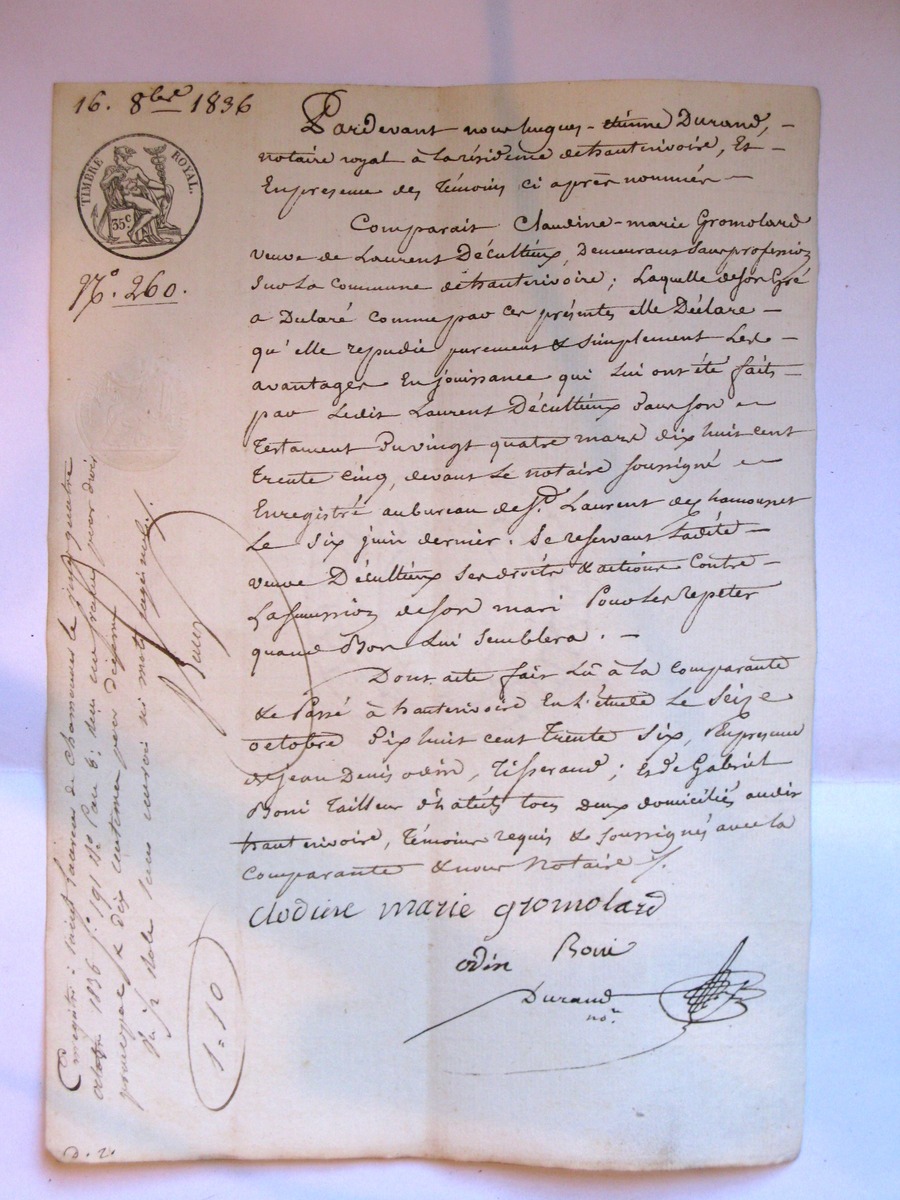 16. 8bre 1836
TIMBRE ROYAL.
35 c.
N.° 260.
Pardevant nous hugues-étienne Durand,
notaire royal à la résidence de hauterivoire, Et
En presence des Témoins ci après nommés
Comparait Claudine-marie Gromolard
veuve de Laurent Décultieux, Demeurant sans profession
sur La Commune de hauterivoire; Laquelle de son Gré
a Déclaré Comme par Ces présentes elle Déclare
qu'elle repudie purement & simplement Les
avantages En jouissance qui lui ont été faits
par Ledit Laurent Décultieux Dans son
Testament Du vingt quatre mars dix huit cent
Trente Cinq, devant Le notaire soussigné
Enregistré au bureau de St. Laurent de chamousset
Le Six juin dernier. Se reservant Ladite
veuve Décultieux ses droits & actions Contre
La succession de son mari Pour Les repeter
quand Bon Lui Semblera.
Dont acte fait Lû à la Comparante
& Passé à hauterivoire En L'étude Le Seize
octobre Dix huit cent Trente Six, En presence
de jean Denis odin, Tisserand; et de Gabriel
Boni Tailleur d'habits tous deux domiciliés audit
hauterivoire, Témoins requis & soussignés avec la
Comparante & nous Notaire /.
clodine marie gromolard
odin Boni
Durand
nore.
Enregistré à saint Laurent de chamousset le vingt quatre
octobre 1836 f.° 191 v.° C. au 6. reçu un franc pour droit
principal & dix centimes pour décime
Du jr. Role sans renvoi ni mot rayé nul /.
1=10
D. 2.